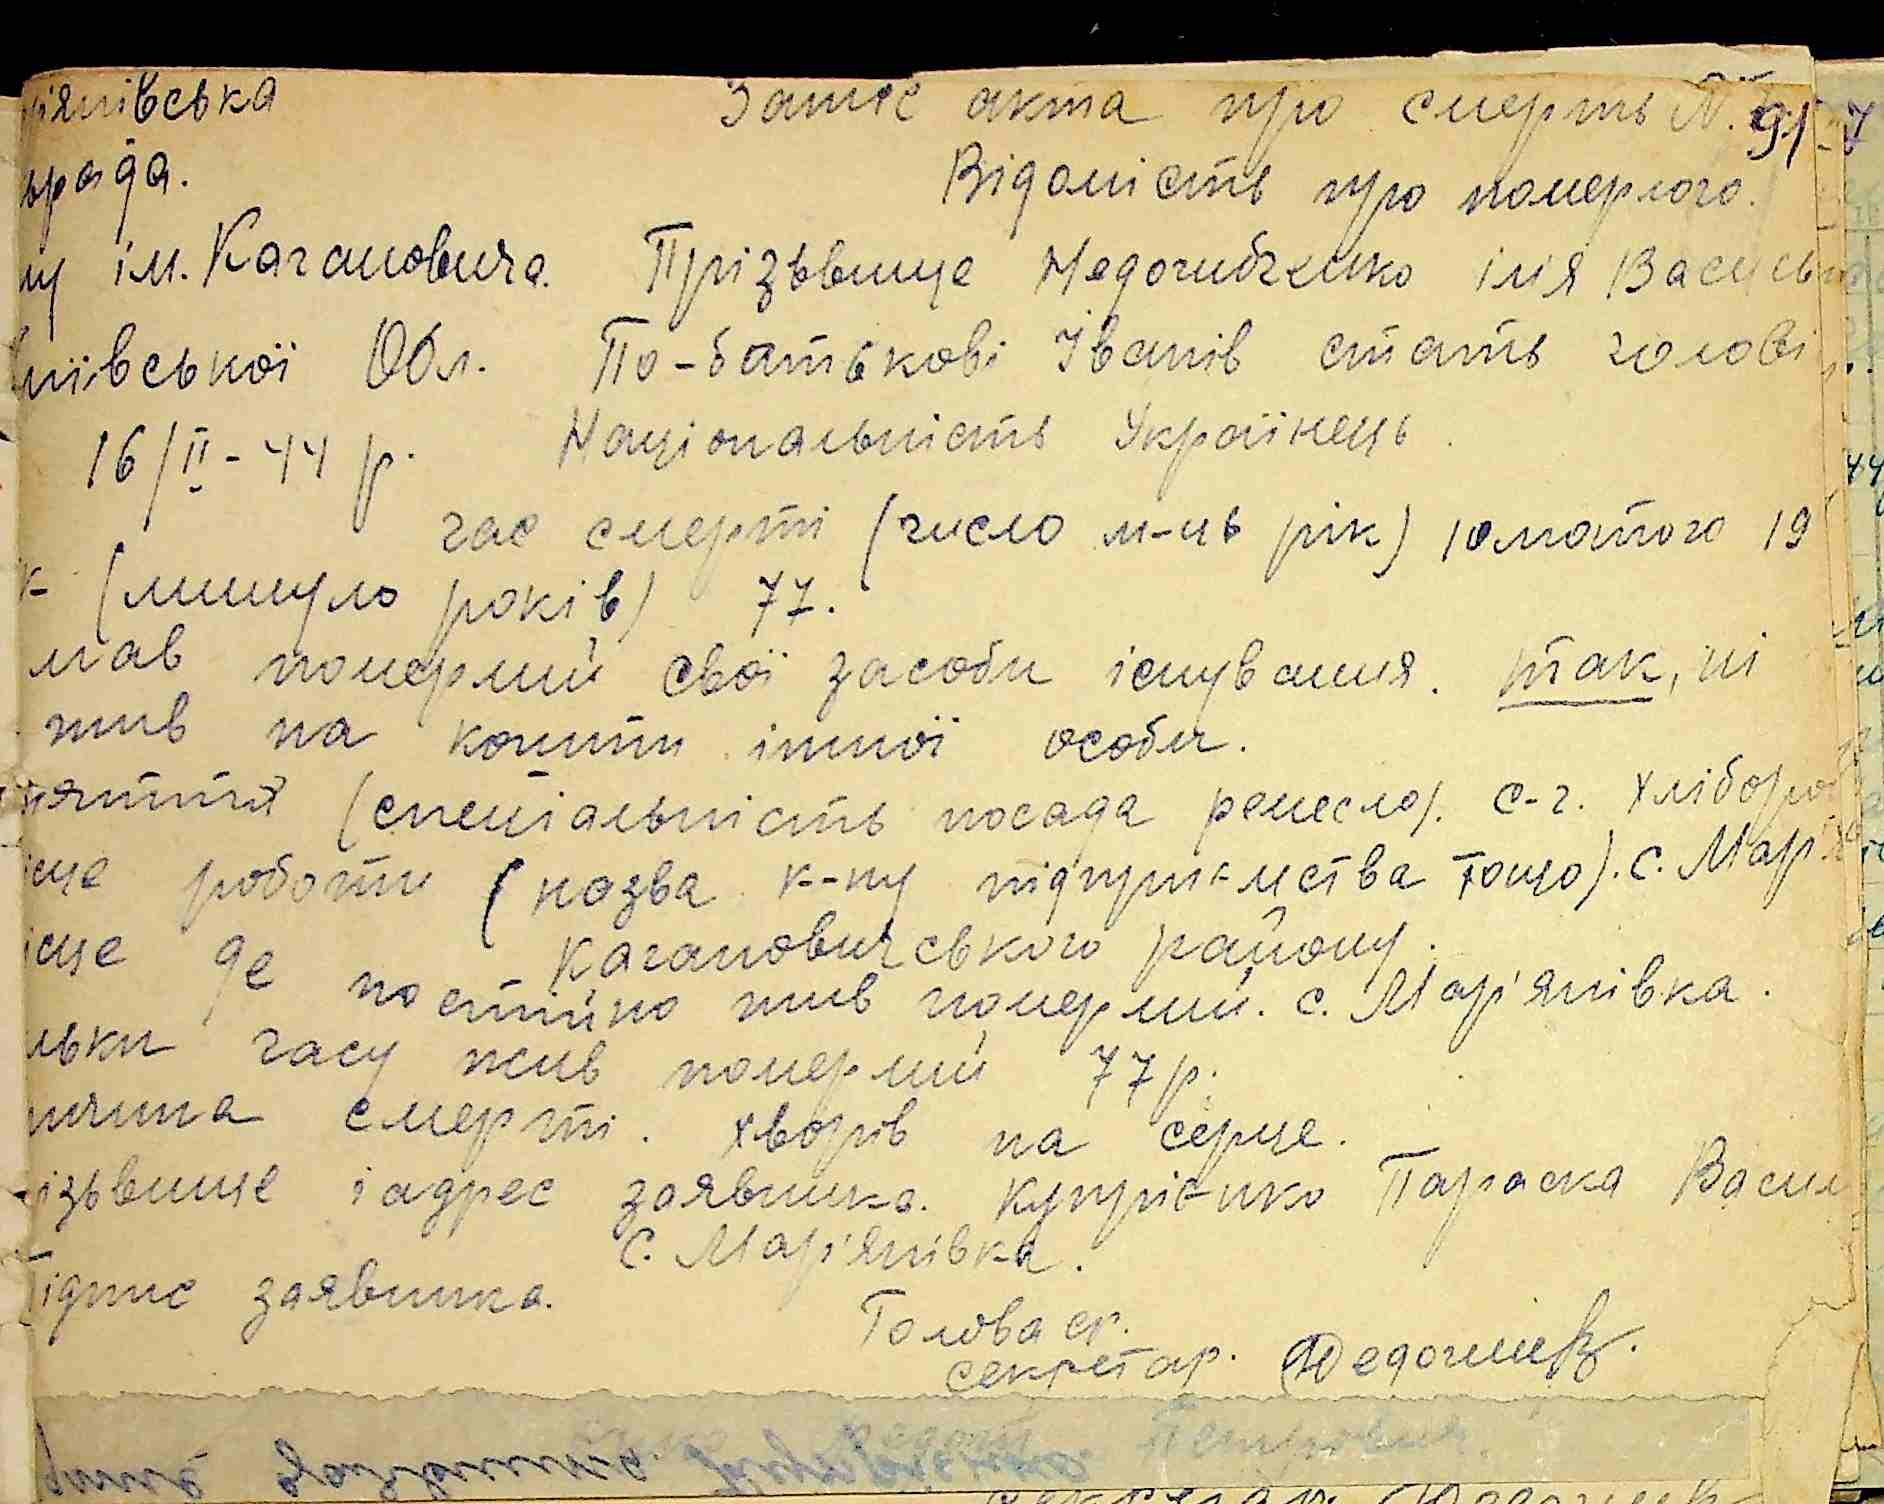 янівська Запис акта про смерть N. 91
рада. Відомість про померлого.
ну ім. Кагановича. Прізьвище Недогибченко імя Василь
ївської Обл. По-батькові Іванів стать чолові
16/II-44 р. Національність Українець.
час смерті (число м-ць рік) 10 лютого 19
к- (минуло років) 77.
мав померлий свої засоби існування. так, ні
жив на кошти іншої особи.
няття (спеціальність посада ремесло). с-г. хлібороб
ісце роботи (назва к-пу підприємства тощо). с. Мар'я
Кагановичського району.
ісце де постійно жив померлий. с. Мар'янівка.
льки часу жив померлий 77 р.
ичина смерті. хворів на серце.
різьвище і адрес заявника. Купрієнко Параска Васил
с. Мар'янівка.
Підпис заявника.
Голова ср.
секретар.
Петрович.
секретар